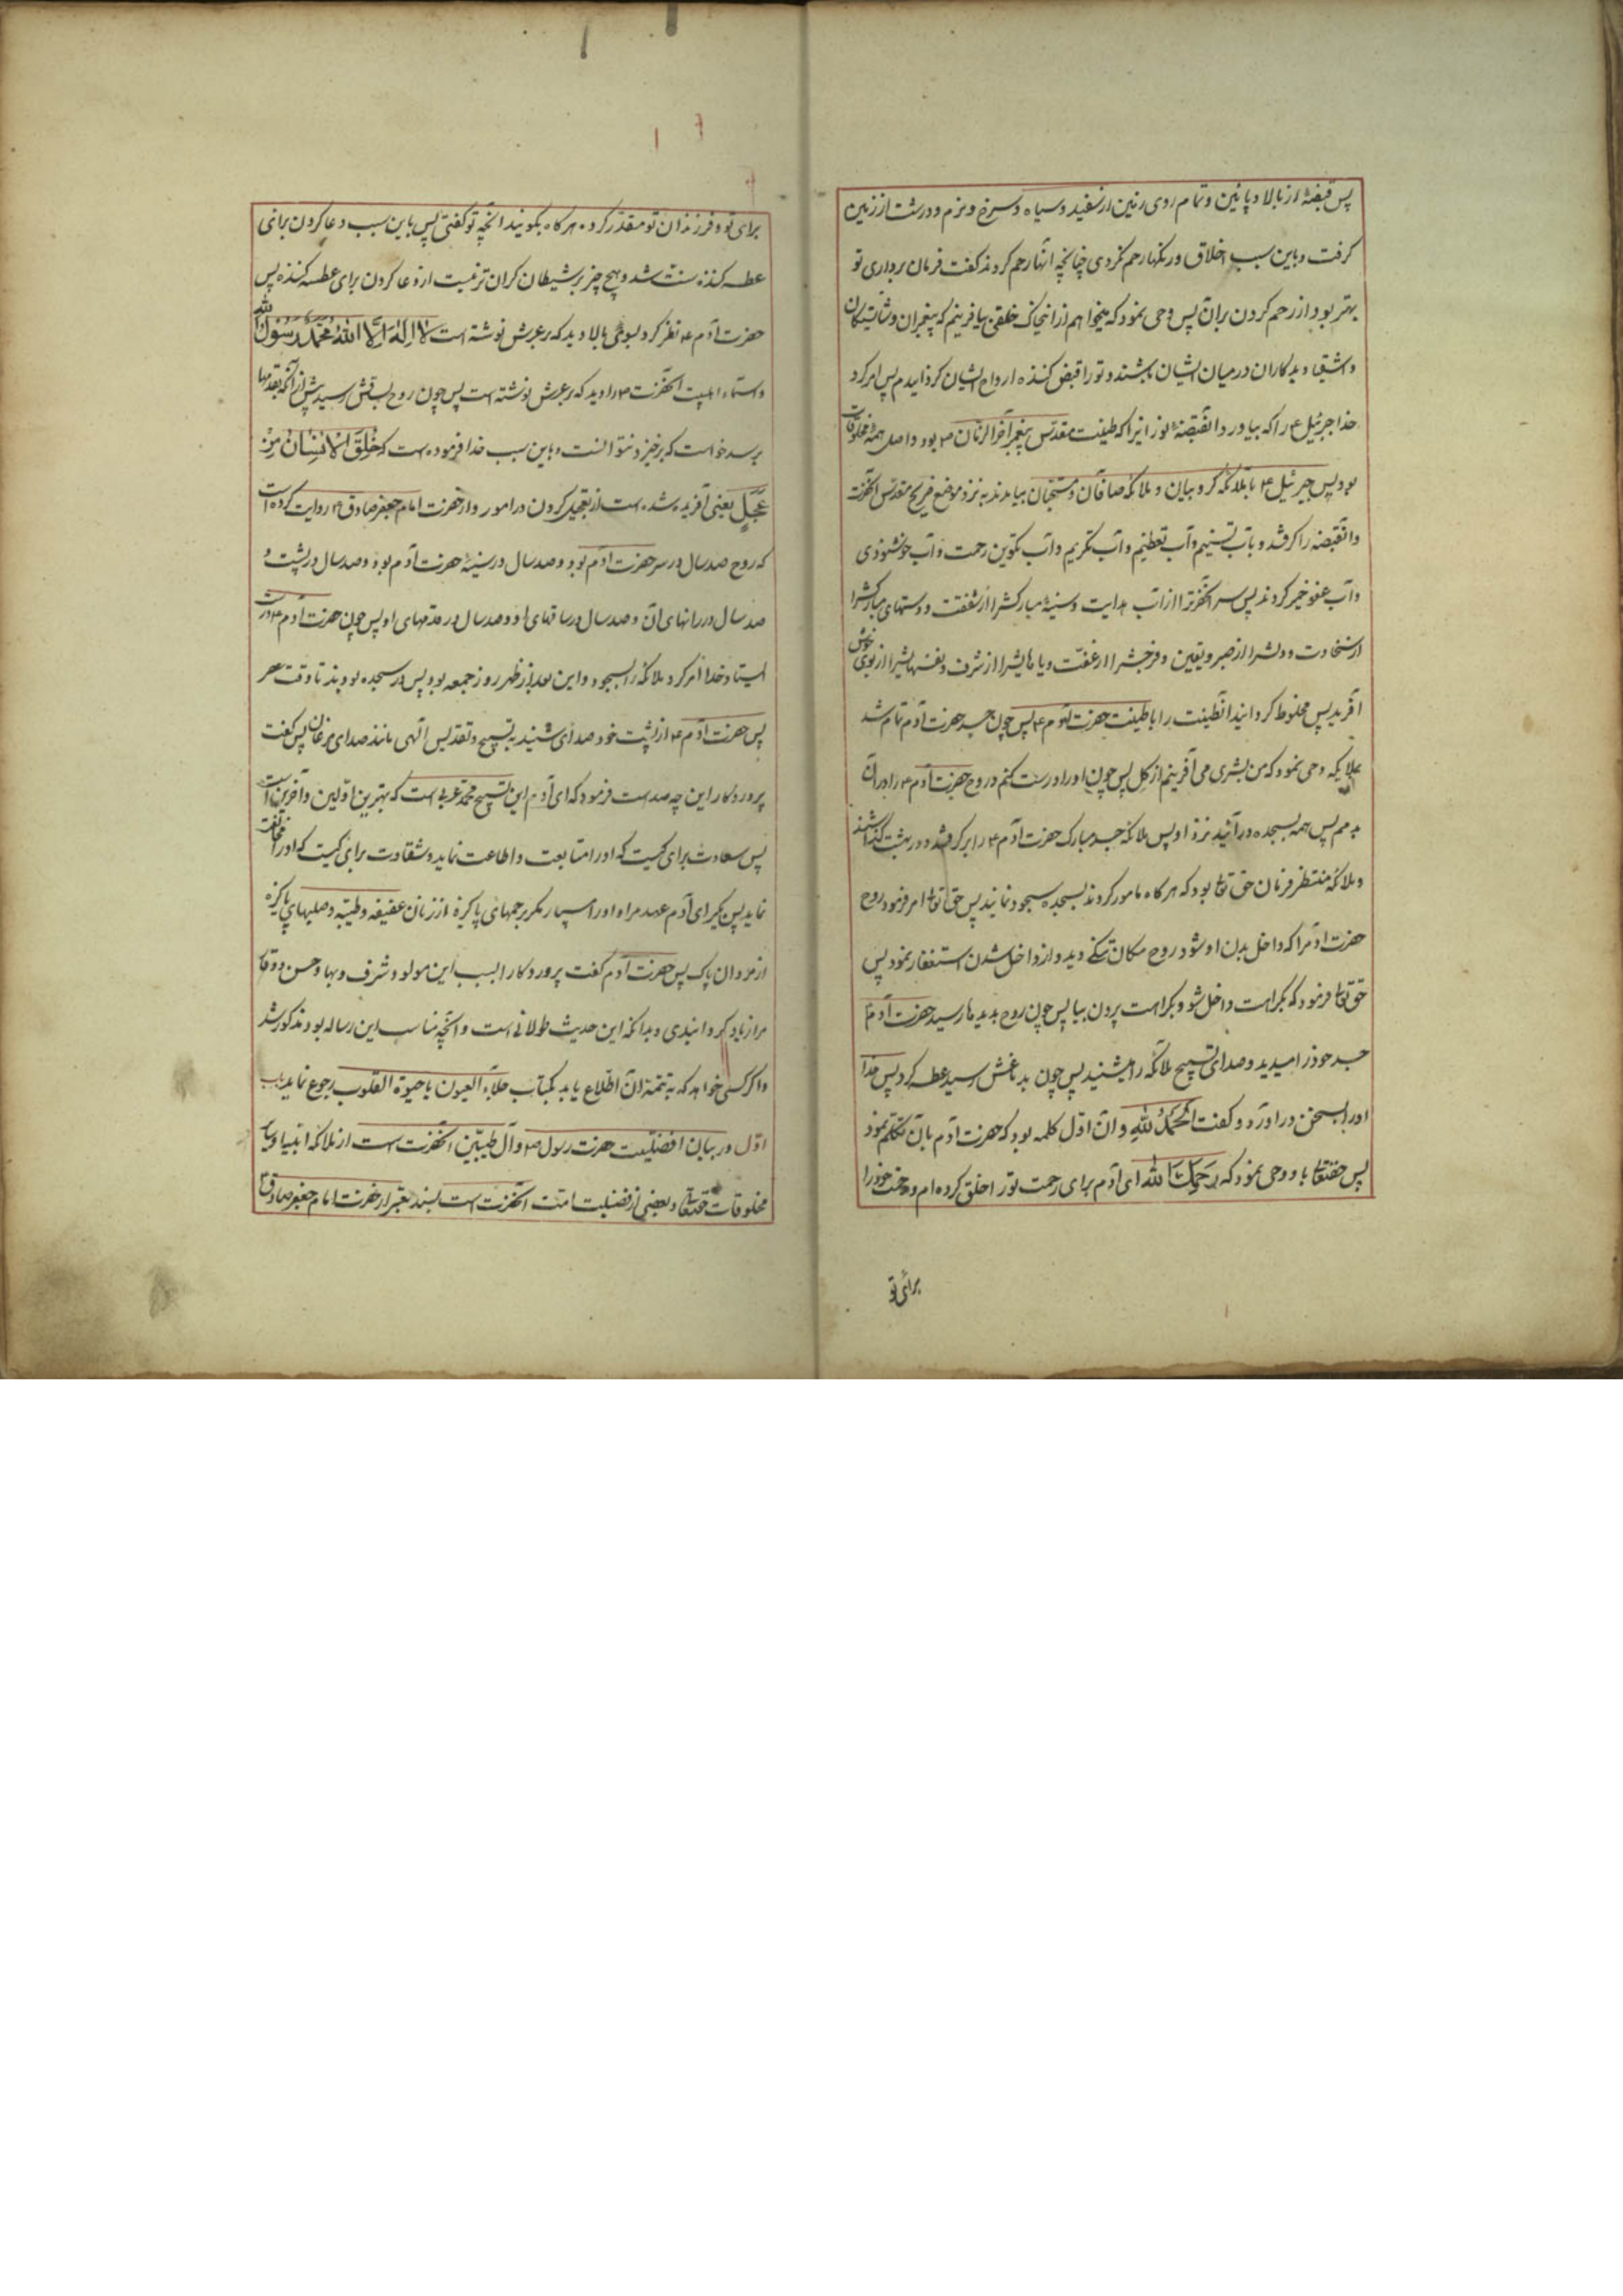 پس قبضهٔ از بالا و پائین و تمام روی زمین از سفید و سیاه و سرخ و نرم و درشت از زمین
گرفت و باین سبب اخلاق و رنگها رحم نکردی چنانچه آنها رحم کردند گفت فرمان برداری تو
بهتر بود از رحم کردن بر آن پس وحی نمود که میخواهم از این خاک خلقی بیافرینم که پیغمبران و شایستگان
و اشقیا و بدکاران در میان ایشان باشند و تو را قبض کننده ارواح ایشان گردانیدم پس امر کرد
خدا جبرئیل ع را که بیاورد آنقبضهٔ نورانیرا که طینت مقدّس پیغمبر آخر الزمان ص بود و اصل همهٔ مخلوقات
بود پس جبرئیل ع با ملائکه کروبیان و ملائکه صافّان و مسبّحان بیامدند به نزد موضع ضریح مقدّس آنحضرت
و آنقبضه را گرفتند و بآب تسنیم و آب تعظیم و آب تکریم و آب تکوین و رحمت و آب خوشنودی
و آب عفو خمیر کردند پس سر آنحضرترا از آب هدایت و سینهٔ مبارکشرا از شفقت و دستهای مبارکشرا
از سخاوت و دلشرا از صبر و یقین و فرجشرا از عفّت و پاهایشرا از شرف و نفسهایشرا از بوی خوش
آفرید پس مخلوط گردانید آنطینت را با طینت حضرت آدم ع پس چون جسد حضرت آدم تمام شد
بملائکه وحی نمود که من بشری می آفرینم از گل پس چون او را درست کنم و روح حضرت آدم ع را در آن
بدمم پس همه بسجده در آئید نزد او پس ملائکه جسد مبارک حضرت آدم ع را برگرفتند و در بهشت گذاشتند
و ملائکه منتظر فرمان حق تعا بودند که هرگاه مامور گردند بسجده سجود نمایند پس حق تعا امر فرمود روح
حضرت آدمرا که داخل بدن او شود روح مکان تنگی دید و از داخل شدن استغفار نمود پس
حق تعا فرمود که بکراهت داخل شو و بکراهت بیرون بیا پس چون روح بدیدها رسید حضرت آدم ع
جسد خود را میدید و صدای تسبیح ملائکه را میشنید پس چون بدماغش رسید عطسه کرد پس خدا
او را بسخن در آورد و گفت اَلْحَمْدُ لِلّٰهِ و آن اوّل کلمه بود که حضرت آدم بآن تکلّم نمود
پس حقتعا باو وحی نمود که رَحِمَكَ اللّٰه ای آدم برای رحمت تو را خلق کرده ام و رحمت خود را
برای تو
برای تو و فرزندان تو مقدّر کرده هرگاه بگویند آنچه تو گفتی پس باین سبب دعا کردن برای
عطسه کننده سنت شد و هیچ چیز بر شیطان گران تر نیست از دعا کردن برای عطسه کننده پس
حضرت آدم ع نظر کرد بسوی بالا دید که بر عرش نوشته است لَا اِلٰهَ اِلَّا اللّٰهُ مُحَمَّدٌ رَسُوْلُ اللّٰه
و اسماء اهلبیت آنحضرت ص را دید که بر عرش نوشته است پس چون روح بساقش رسید پیش از آنکه بقدمها
برسد خواست که برخیزد نتوانست و باین سبب خدا فرموده است که خُلِقَ الْاِنْسَانُ مِنْ
عَجَلٍ یعنی آفریده شده است از تعجیل کردن در امور و از حضرت امام جعفر صادق ع روایت کرده است
که روح صد سال در سر حضرت آدم بود و صد سال در سینهٔ حضرت آدم بود و صد سال در پشت و
صد سال در رانهای آن و صد سال در ساقهای او و صد سال در قدمهای او پس چون حضرت آدم ع درست
ایستاد خدا امر کرد ملائکه را بسجود و این بعد از ظهر روز جمعه بود پس در سجده بودند تا وقت عصر
پس حضرت آدم ع از پشت خود صدای شنید به تسبیح و تقدیس الهی مانند صدای مرغان پس گفت
پروردگار این چه صداست فرمود که ای آدم این تسبیح محمّد عربی است که بهترین اوّلین و آخرین است
پس سعادت برای کیست که او را متابعت و اطاعت نماید و شقاوت برای کیست که او را مخالفت
نماید پس بگیر ای آدم عهد مرا و او را مسپار مگر برحمهای پاکیزه از زنان عفیفه و طیّبه و صلبهای پاکیزه
از مردان پاک پس حضرت آدم گفت پروردگارا بسبب این مولود شرف و بها و حسن و وقا
مرا زیاد گردانیدی و بدانکه این حدیث طولانی است و آنچه مناسب این رساله بود مذکور شد
و اگر کسی خواهد که به تتمّه آن اطّلاع یابد بکتاب جلاء العیون یا حیوة القلوب رجوع نماید باب
اوّل در بیان افضلیّت حضرت رسول ص و آل طیبّین آنحضرت است از ملائکه انبیا و سا
مخلوقات حقتعا و بعضی از فضیلت امّت آنحضرت است بسند معتبر از حضرت امام جعفر صادق ع